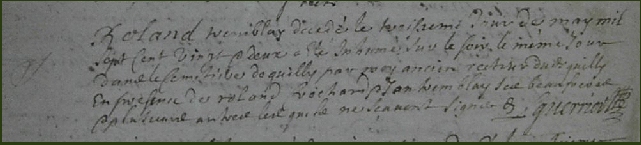 Roland tremblay décédé le troisieme Jour de may mil
sept cent vingt et deux a esté Inhumé sur le soir le même Jour
dans le cimetiere de quilly par moy ancien recteur dud quilly
En presence de roland rochard Jan tremblay son beaufrere
et plusieurs autres lesquels ne scavent signer &